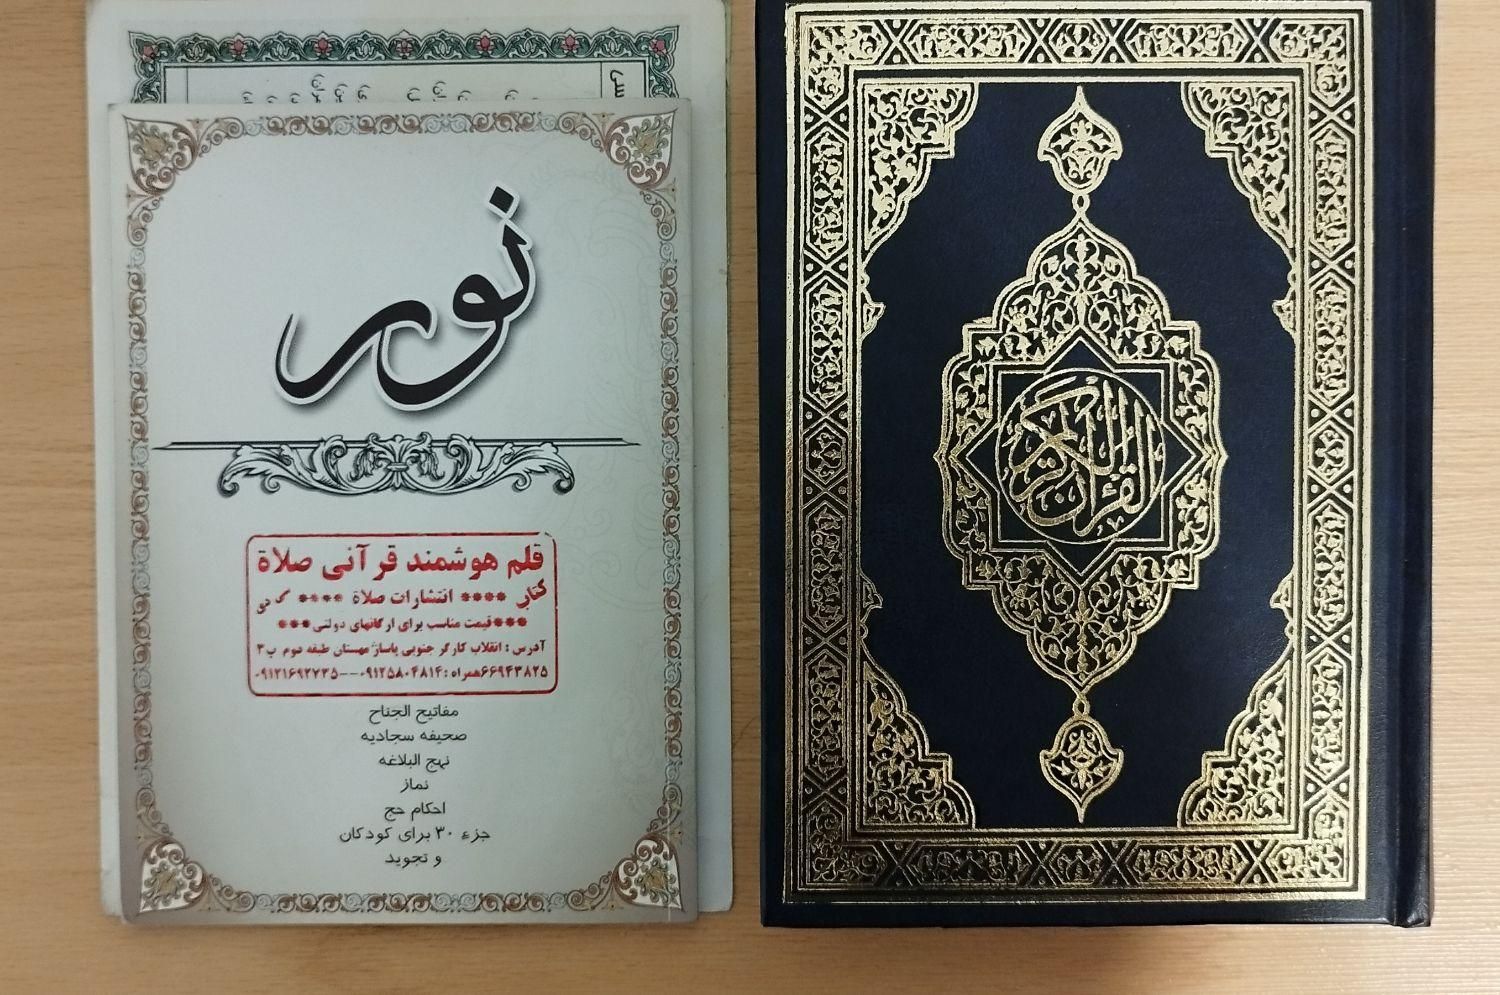 نور
قلم هوشمند قرآنی صلاة
کتاب **** انتشارات صلاة ****
***قیمت مناسب برای ارگانهای دولتی***
آدرس : انقلاب کارگر جنوبی پاساژ مهستان طبقه دوم پ ۳
۶۶۹۴۳۸۲۵همراه :۰۹۱۲۵۸۰۴۸۱۴--۰۹۱۲۱۶۹۲۷۳۵
مفاتیح الجناح
صحیفه سجادیه
نهج البلاغه
نماز
احکام حج
جزء ۳۰ برای کودکان
و تجوید
القرآن الكريم